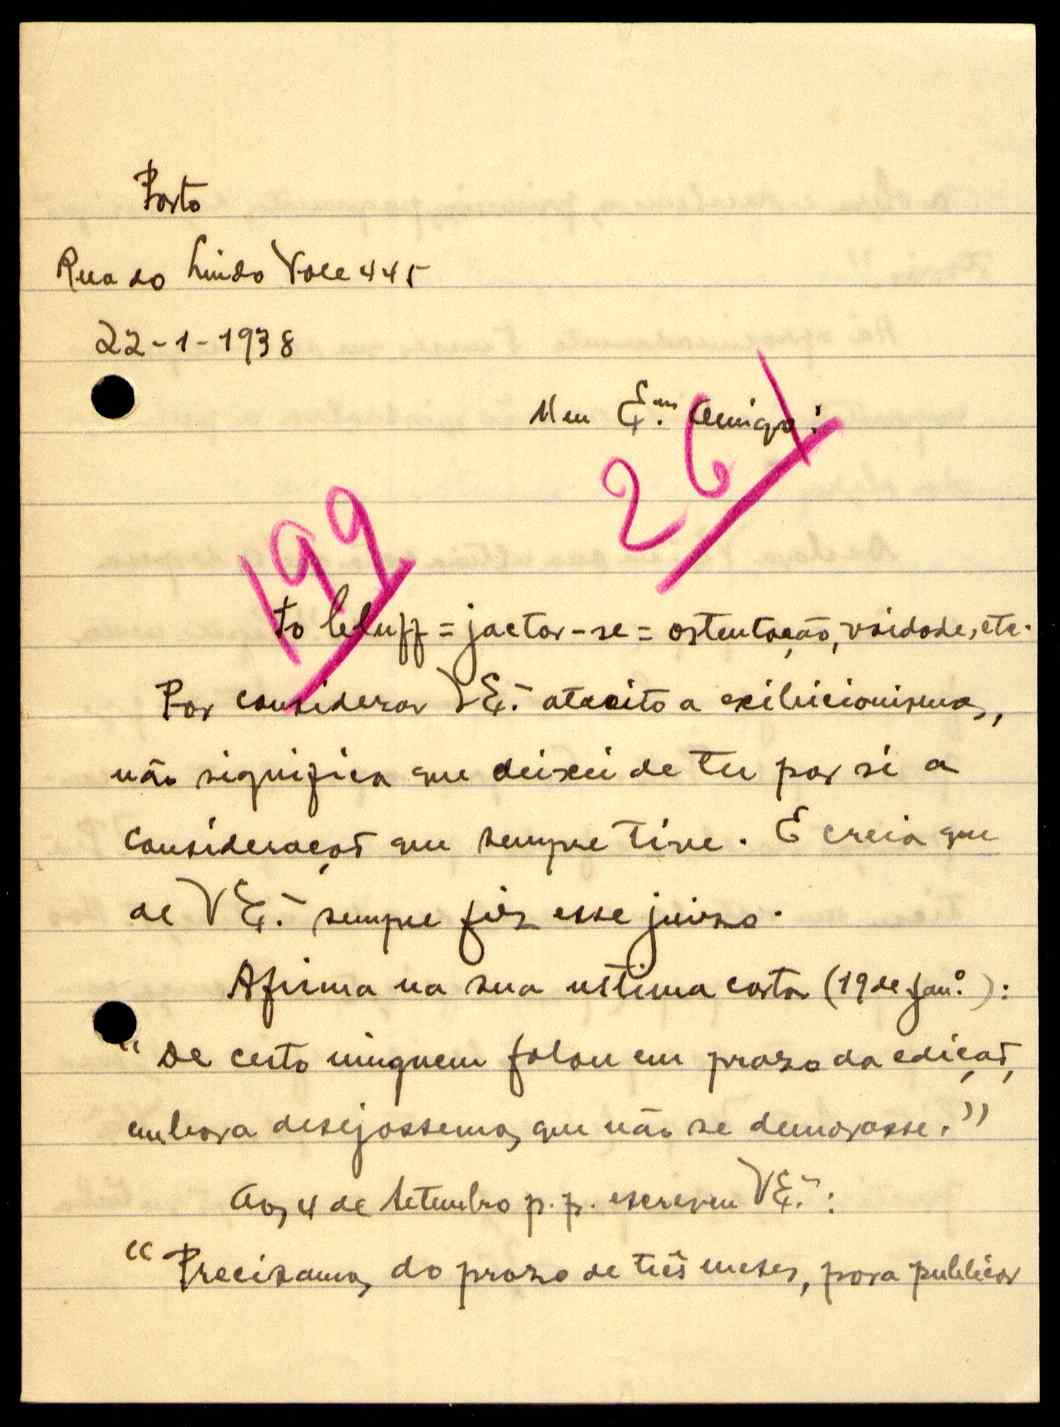 Porto
Rua do Lindo Vale 445
22-1-1938
Meu Ex.mo Amigo:
261
199
to bluff = jactar-se = ostentação, vaidade, etc.
Por considerar V Ex.ª atreito a exibicionismos,
não significa que deixei de ter por si a
consideração que sempre tive. E creia que
de V Ex.ª sempre fiz esse juizo.
Afirma na sua ultima carta (19 de Jan.º):
"De certo ninguem falou em prazo da edição,
embora desejassemos que não se demorasse."
Aos 4 de Setembro p.p. escreveu V Ex.ª:
"Precisamos do prazo de três meses, para publicar